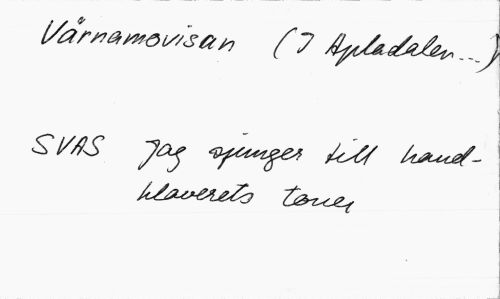 Värnamovisan (I Apladalen...)
SVAS Jag sjunger till hand-
klaverets toner